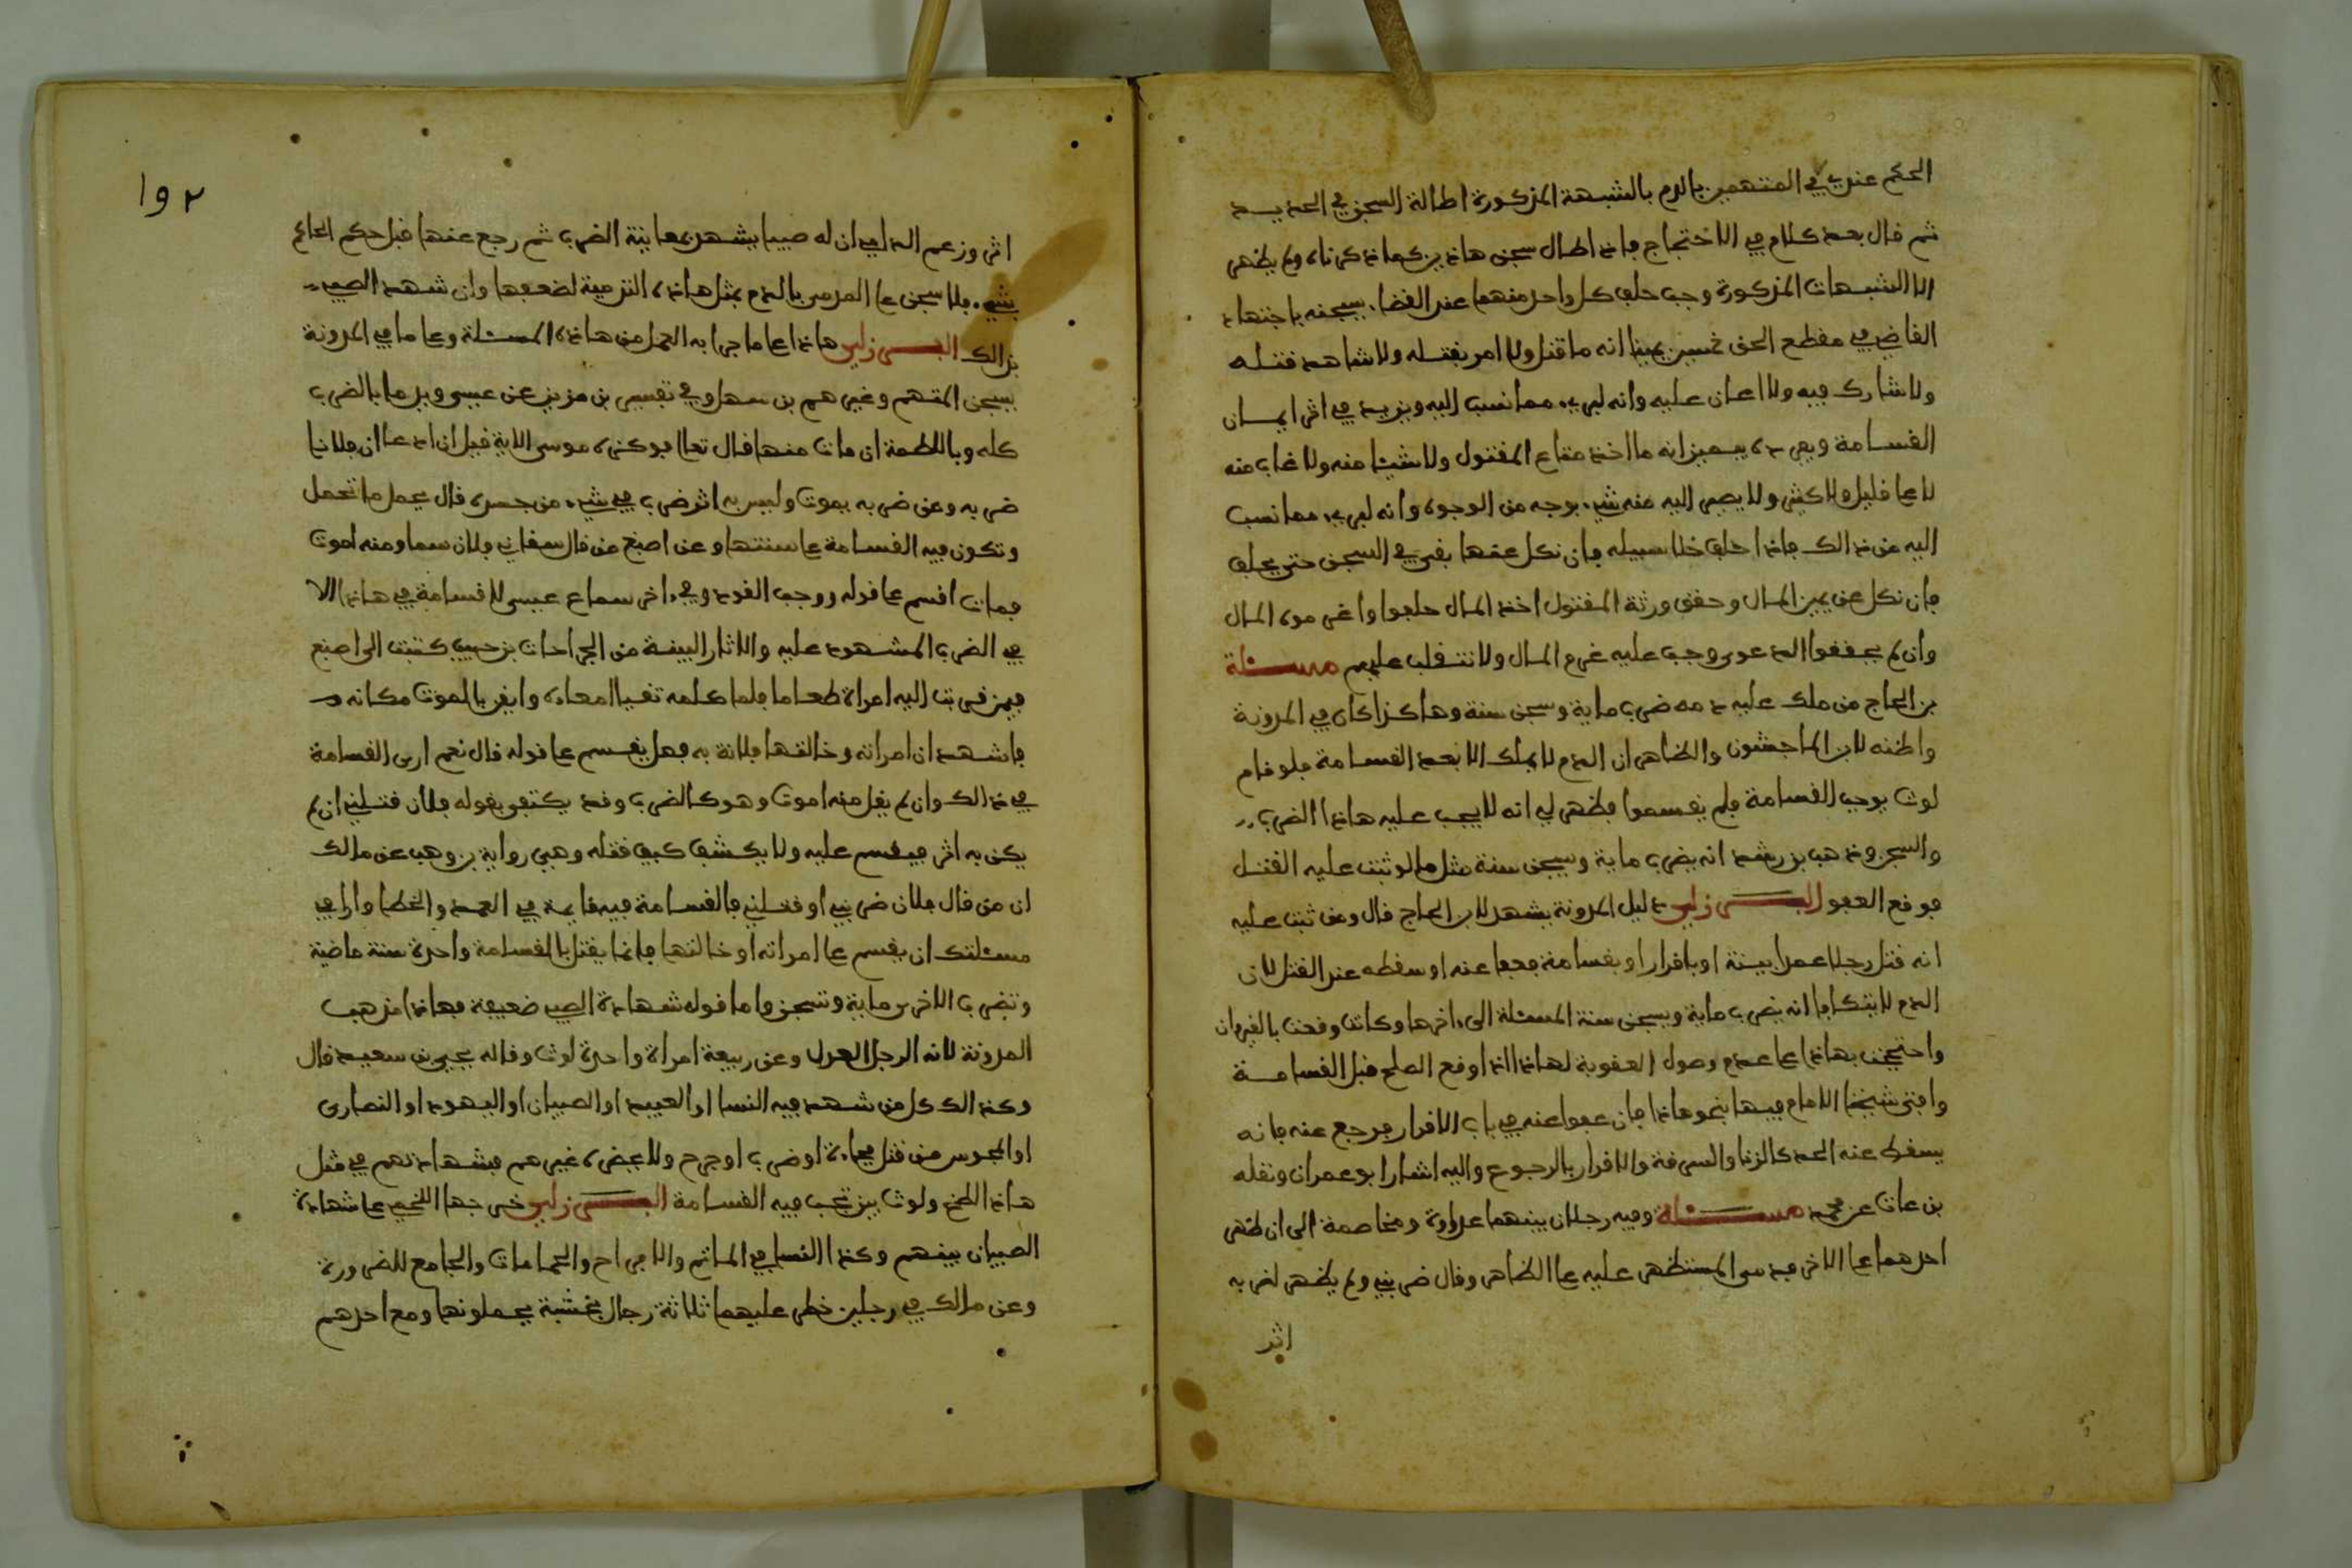 الحكم عندي في المتهمين بالدم بالشبهة المذكورة اطالة السجن في الحديد
ثم قال بعد كلام في الاحتجاج فاذا طال سجن هاذين كما ذكرناه ولم يظهر
الا الشبهات المذكورة وجب حلف كل واحد منهما عند القضاء بسجنه باجتهاد
القاضي في مقطع الحق خمسين يمينا انه ما قتل ولا امر بقتله ولا شاهد قتله
ولا شارك فيه ولا اعان عليه وانه لبريء مما نسب اليه ويزيد في اثر ايمان
القسامة وبعدها يميز انه ما اخذ متاع المقتول ولا شيئا منه ولا غاب منه
لا على قليل ولا كثير ولا يصير اليه منه شيء بوجه من الوجوه وانه لبريء مما نسب
اليه من ذالك فاذا حلف خلا سبيله فان نكل عنها بقي في السجن حتى يحلف
فان نكل عن يمين المال وحقق ورثة المقتول اخذ المال حلفوا واغرموه المال
وان لم يحققوا الدعوى وجب عليه غرم المال ولا تنقلب عليهم مسئلة
بن الحاج من ملك عليه دمه ضرب ماية وسجن سنة وهاكذا كان في المدونة
واظنه لابن الماجشون والظاهر ان الدم لا يملك الا بعد القسامة فلو قام
لوث يوجب القسامة فلم يقسموا فظهر لي انه لا يجب عليه هاذا الضرب
والسجن وذهب بن رشد انه يضرب ماية وسجن سنة مثل ما لو ثبت عليه القتل
فوقع العفو البرزلي دليل المدونة يشهد لابن الحاج قال ومن ثبت عليه
انه قتل رجلا عمدا ببينة او باقرار او بقسامة فعفا عنه او سقط عنه القتل لان
الدم لا يتكافا انه يضرب ماية ويسجن سنة المسئلة الى اخرها وكانت وقعت بالقيروان
واحتججت بهاذا على عدم وصول العقوبة لهاذا اذا وقع الصلح قبل القسامة
وافتى شيخنا الامام فيها بنحو هاذا فان عفوا عنه في باب الاقرار فرجع عنه فانه
يسقط عنه الحد كالزنا والسرقة والاقرار بالرجوع واليه اشار ابو عمران ونقله
بن عات عن محمد مسئلة وفيه رجلان بينهما عداوة ومخاصمة الى ان ظهر
احدهما على الاخر فيدمى المستظهر عليه على الظاهر وقال ضربني ولم يظهر لضربه
اثر
١٩٢
اثر وزعم المدمى ان له صبيا يشهد بمعاينة الضرب ثم رجع عنها قبل حكم الحاكم
بشيء فلا سجن على المدمى بالدم بمثل هاذه التدمية لضعفها وان شهد الصبي
بذالك البرزلي هاذا على ما جرا به العمل من هاذه المسئلة وعلى ما في المدونة
يسجن المتهم وغيرهم بن سهل وفي تفسير بن مزين عن عيسى ويدما بالضرب
كله وباللطمة ان مات منها قال تعلى فوكزه موسى الاية قيل ان ادعا ان فلانا
ضربه وعن ضربه يموت وليس به اثر ضرب في شيء من جسده قال يحمل ما تحمل
وتكون فيه القسامة على سنتها وعن اصبغ من قال سقاني فلان سما ومنه اموت
فمات اقسم على قوله ووجب القود وفي اخر سماع عيسى لا قسامة في هاذا الا
في الضرب المشهود عليه والاثار البينة من الجراحات بن حبيب كتبت الى اصبغ
فيمن قربت اليه امراة طعاما فلما طعمه تقيا امعاده وايقن بالموت مكانه
فاشهد ان امراته وخالتها فلانة به فهل يقسم على قوله قال نعم ارى القسامة
في ذالك وان لم يقل منه اموت وهو كالضرب وقد يكتفي بقوله فلان قتلني ان لم
يكن به اثر فيقسم عليه ولا يكشف كيف قتله وهي رواية بن وهب عن مالك
ان من قال فلان ضربني او قتلني فالقسامة فيه قايمة في العمد والخطا وارا في
مسئلتك ان يقسم على امراته او خالتها فانما يقتل بالقسامة واحدة سنة ماضية
وتضرب الاخرى ماية وتسجن واما قوله شهادة الصبي ضعيفة فهاذا مذهب
المدونة لانه الرجل العدل وعن ربيعة امراة واحدة لوث وقاله يحيى بن سعيد قال
وكذالك كل من شهد فيه النسا او العبيد او الصبيان او اليهود او النصارى
او المجوس من قتل فجاءة او ضرب او جرح ولا يحضره غيرهم فشهادتهم في مثل
هاذا الطخ ولوث بين تجب فيه القسامة البرزلي خرجها اللخمي على شهادة
الصبيان بينهم وكذا النسا في الماتم والافراح والحمامات والجامع للضرورة
وعن مالك في رجلين خطر عليهما ثلاثة رجال بخشبة يحملونها ومع احدهم